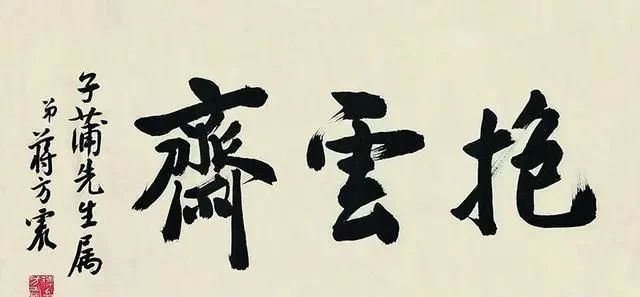 抱雲齋
子蒲先生属
弟蒋方震